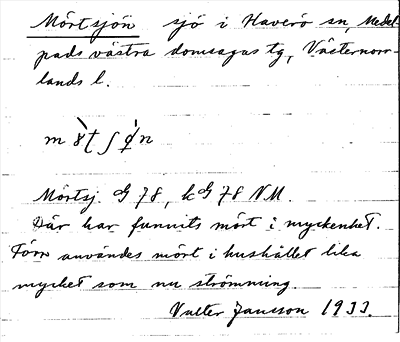 Mörtsjön sjö i Haverö sn, Medel-
pads västra domsagas tg, Västernorr-
lands l.
Mörtsj. G 78, k G 78 NM.
Där har funnits mört i myckenhet.
Förr användes mört i hushållet lika
mycket som nu strömming.
Valter Jansson 1933.